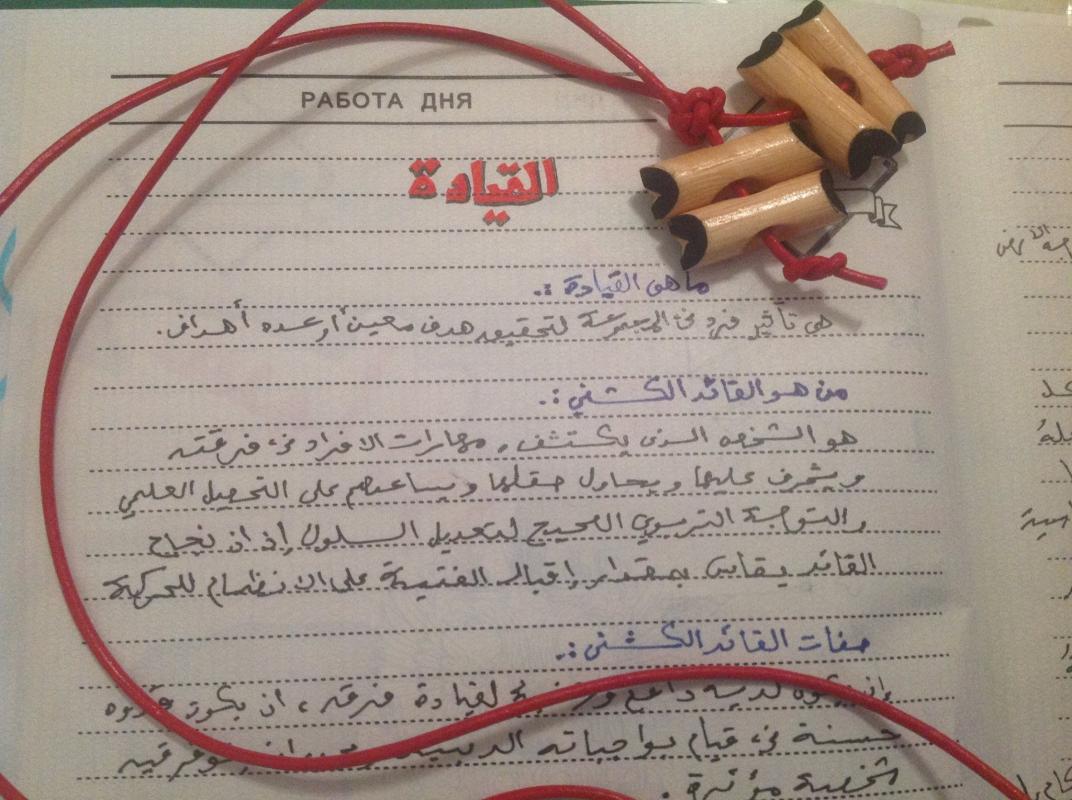 РАБОТА ДНЯ
القيادة
ما هي القيادة :.
هي تأثير فرد في المجموعة لتحقيق هدف معين أو عده أهداف.
من هو القائد الكشفي :.
هو الشخص الذي يكتشف مهارات الافراد في فرقته
ويشرف عليها ويحاول صقلها ويساعدهم على التحصيل العلمي
والتوجية التربوي الصحيح لتعديل السلوك إذ ان نجاح
القائد يقاس بمقدار إقبال الفتية على الانظمام للحركة
صفات القائد الكشفي :.
إن يكون لدية دافع لقيادة فرقه ، ان يكون قدوه
حسنة في قيام بواجباته الدينية
شخصية مؤثرة .